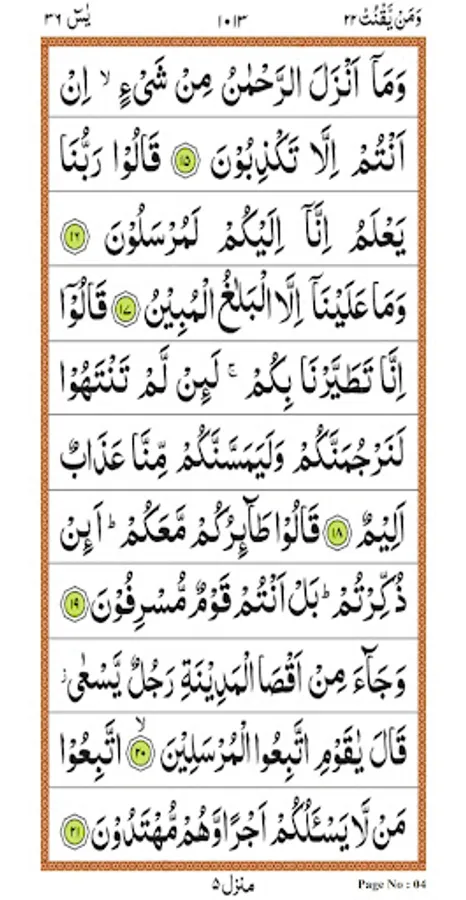 وَمَنْ يَّقْنُتْ ٢٢ ١٠١٣ يٰسٓ ٣٦
وَمَاۤ اَنْزَلَ الرَّحْمٰنُ مِنْ شَیْءٍ ۙ اِنْ
اَنْتُمْ اِلَّا تَكْذِبُوْنَ ﴿١٥﴾ قَالُوْا رَبُّنَا
یَعْلَمُ اِنَّاۤ اِلَیْكُمْ لَمُرْسَلُوْنَ ﴿١٦﴾
وَمَا عَلَیْنَاۤ اِلَّا الْبَلٰغُ الْمُبِیْنُ ﴿١٧﴾ قَالُوْۤا
اِنَّا تَطَیَّرْنَا بِكُمْ ۚ لَىِٕنْ لَّمْ تَنْتَهُوْا
لَنَرْجُمَنَّكُمْ وَلَیَمَسَّنَّكُمْ مِّنَّا عَذَابٌ
اَلِیْمٌ ﴿١٨﴾ قَالُوْا طَآىِٕرُكُمْ مَّعَكُمْ ؕ اَىِٕنْ
ذُكِّرْتُمْ ؕ بَلْ اَنْتُمْ قَوْمٌ مُّسْرِفُوْنَ ﴿١٩﴾
وَجَآءَ مِنْ اَقْصَا الْمَدِیْنَةِ رَجُلٌ یَّسْعٰی ؗ
قَالَ یٰقَوْمِ اتَّبِعُوا الْمُرْسَلِیْنَ ﴿٢٠﴾ۙ اتَّبِعُوْا
مَنْ لَّا یَسْـَٔلُكُمْ اَجْرًا وَّهُمْ مُّهْتَدُوْنَ ﴿٢١﴾
منزل ۵ Page No : 04